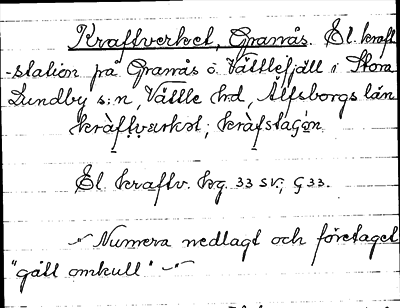 Kraftverket, Granås. El. kraft
-station på Granås ö. Vättlefjäll i Stora
Lundby s:n, Vättle hd, Älfsborgs län
kràftvarkət; kràfstaǵn
El. kraftv. hg. 33 SV; G 33.
-"- Numera nedlagt och företaget
"gått omkull" -"-